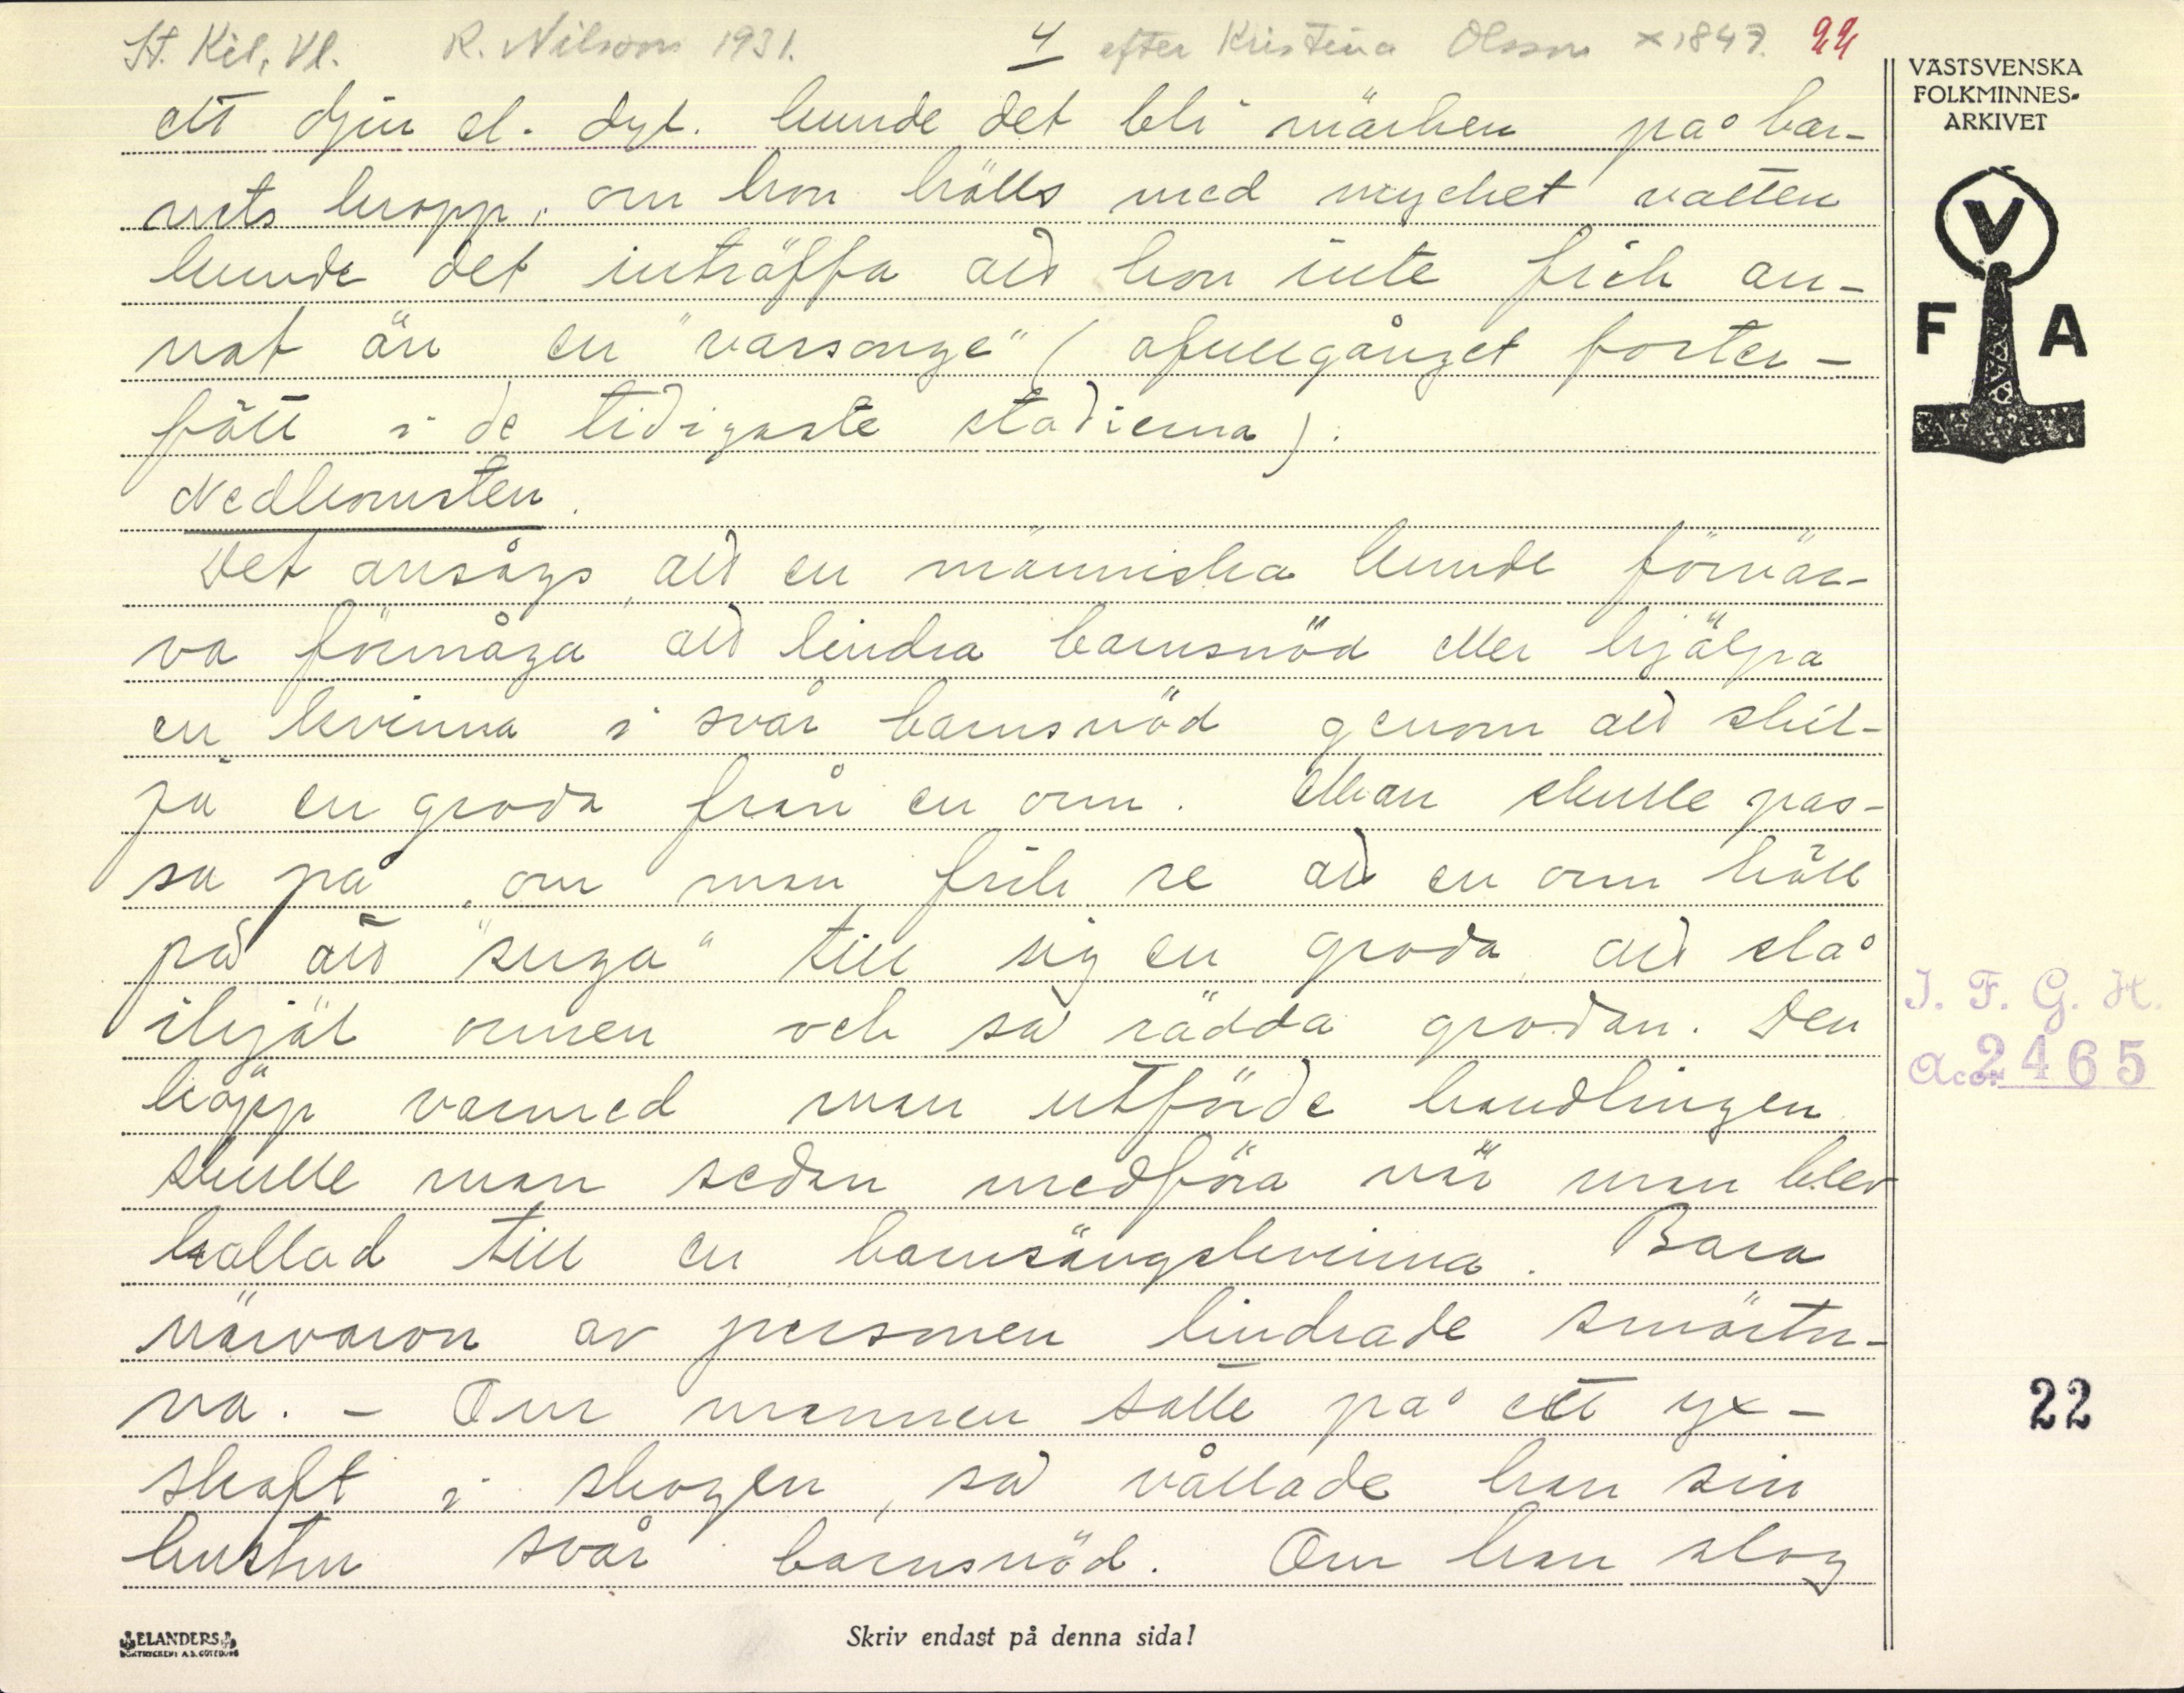 St. Kil, Vl. R. Nilsson 1931. 4 efter Kristina Olsson x 1847. 22
VÄSTSVENSKA
FOLKMINNES-
ARKIVET
V
F A
ett djur el. dyl. kunde det bli märken på bar-
nets kropp, om hon hölls med mycket vatten
kunde det inträffa att hon inte fick an-
nat än en "varsonge" (ofullgånget foster-
fött i de tidigaste stadierna).
Nedkomsten.
Det ansågs, att en människa kunde förvär-
va förmåga att lindra barnsnöd eller hjälpa
en kvinna i svår barnsnöd genom att skil-
ja en groda från en orm. Man skulle pas-
sa på, om man fick se att en orm höll
på att "suga" till sig en groda, att slå
ihjäl ormen och så rädda grodan. Den
käpp varmed man utförde handlingen
skulle man sedan medföra när man blev
kallad till en barnsängskvinna. Bara
närvaron av personen lindrade smärtor-
na. - Om mannen satte på ett yx-
skaft i skogen, så vållade han sin
hustru svår barnsnöd. Om han slog
I. F. G. H.
Acc. 2465
22
ELANDERS
BOKTRYCKERI A.B. GÖTEBORG
Skriv endast på denna sida!